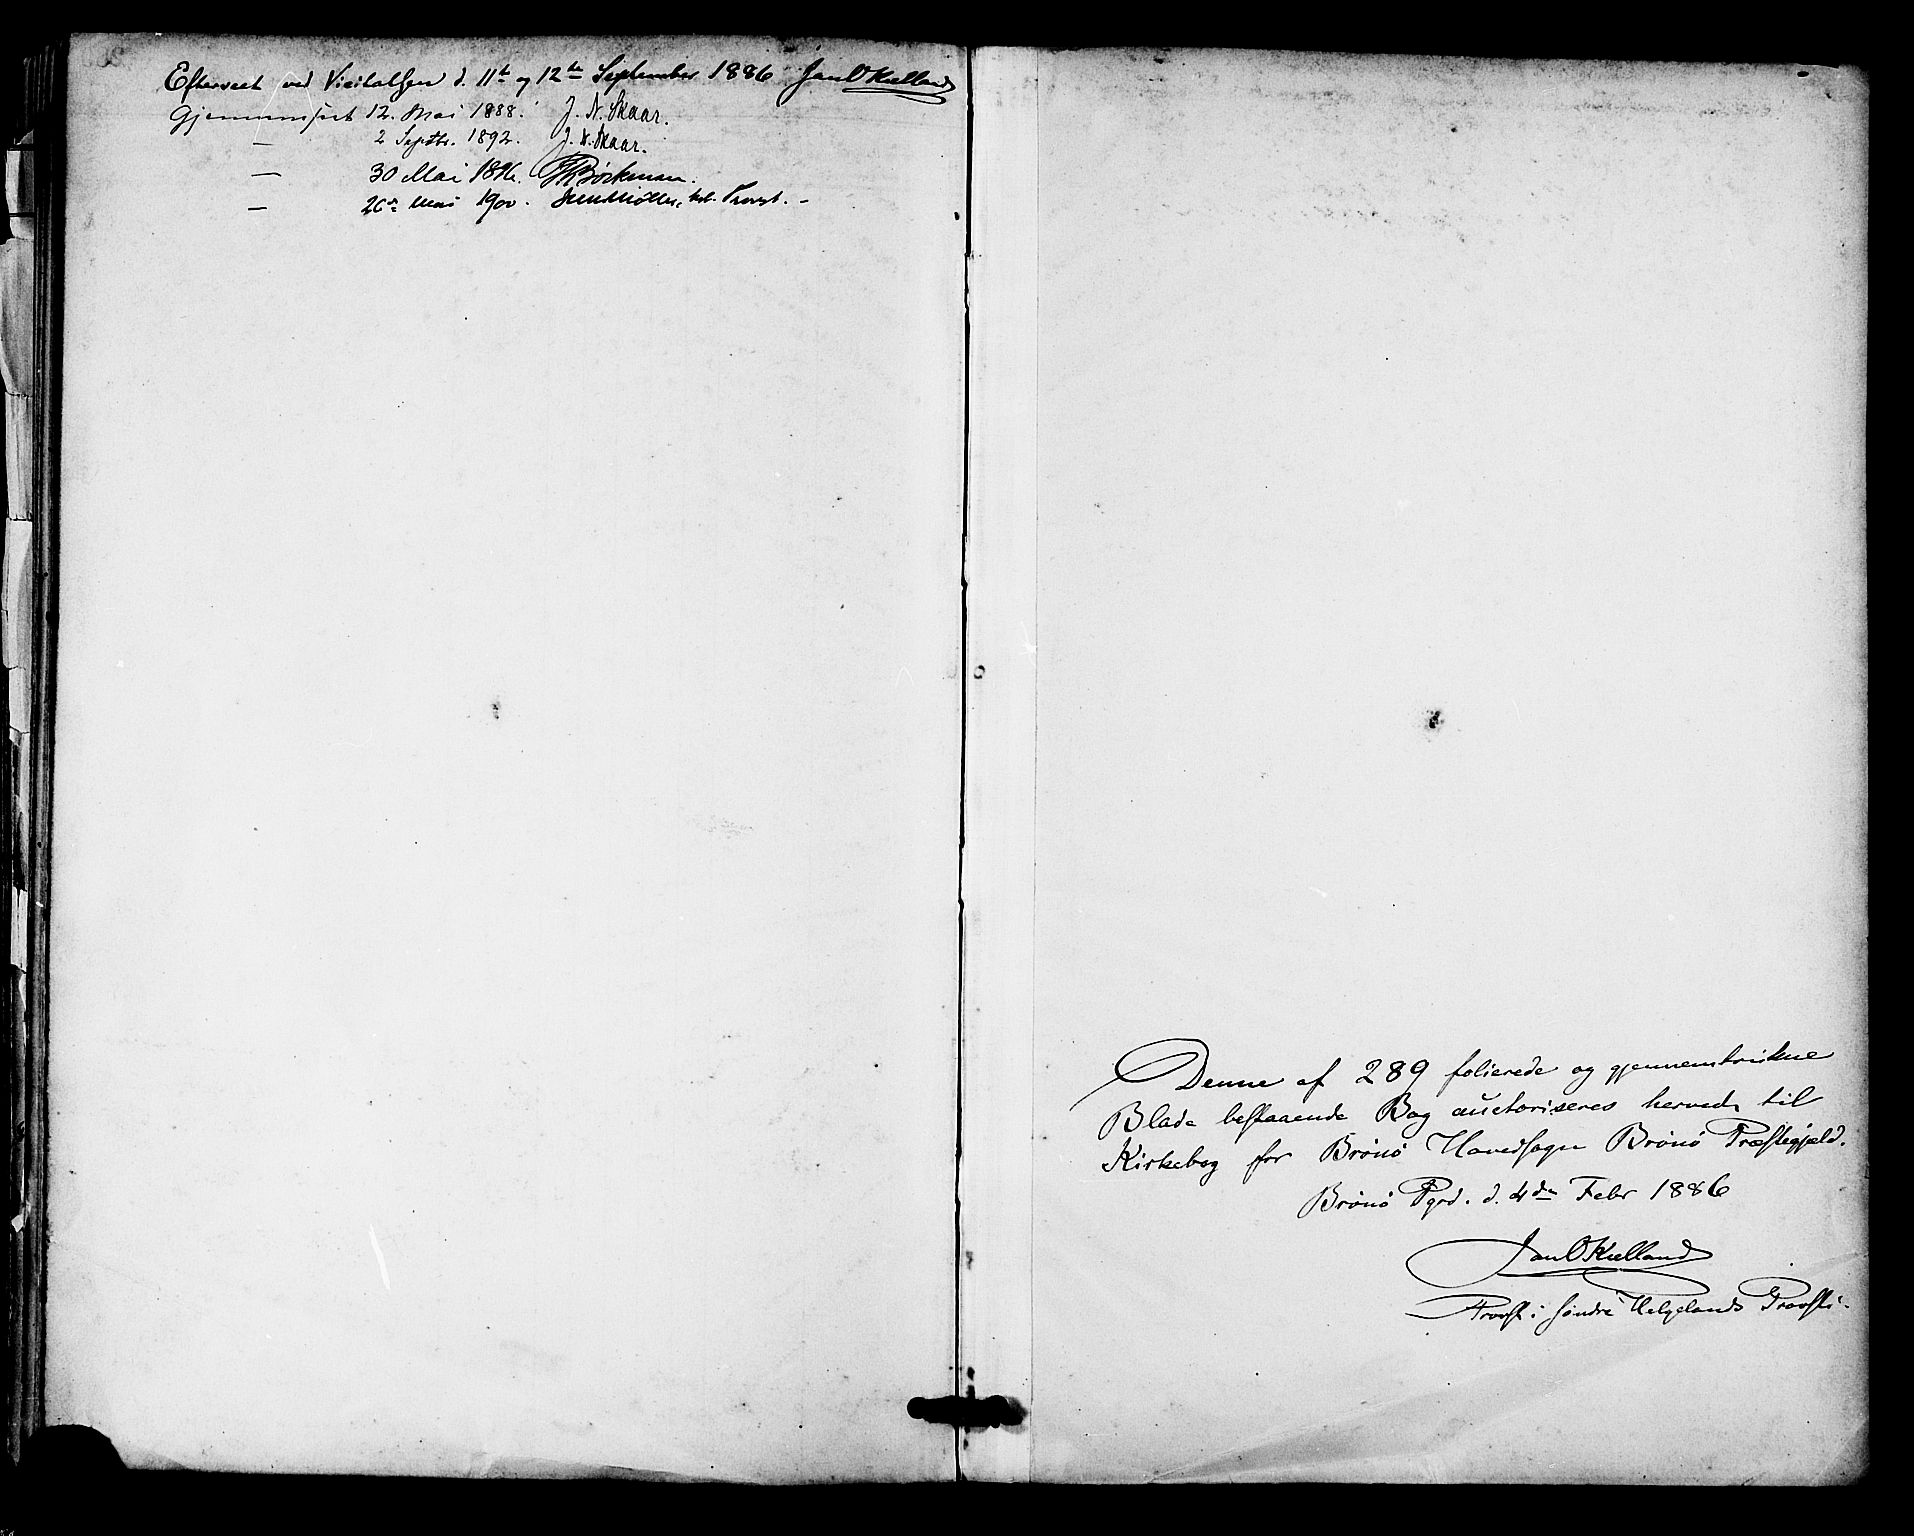 Efterseet ved Visitatsen d. 11te og 12te September 1886 Jan O Kielland
Gjennemseet 12. Mai 1888. J. N. Skaar.
— 2 Septbr. 1892. J. N. Skaar.
— 30 Mai 1896. Bøckman.
— 26de Mai 1900. Provst. –
Denne af 289 folierede og gjennemtrukne
Blade bestaaende Bog auctoriseres herved til
Kirkebog for Brønø Hovedsogn Brønø Præstegjæld.
Brønø Pgrd. d. 4de Febr 1886
Jan O Kielland
Provst i søndre Helgelands Provsti.